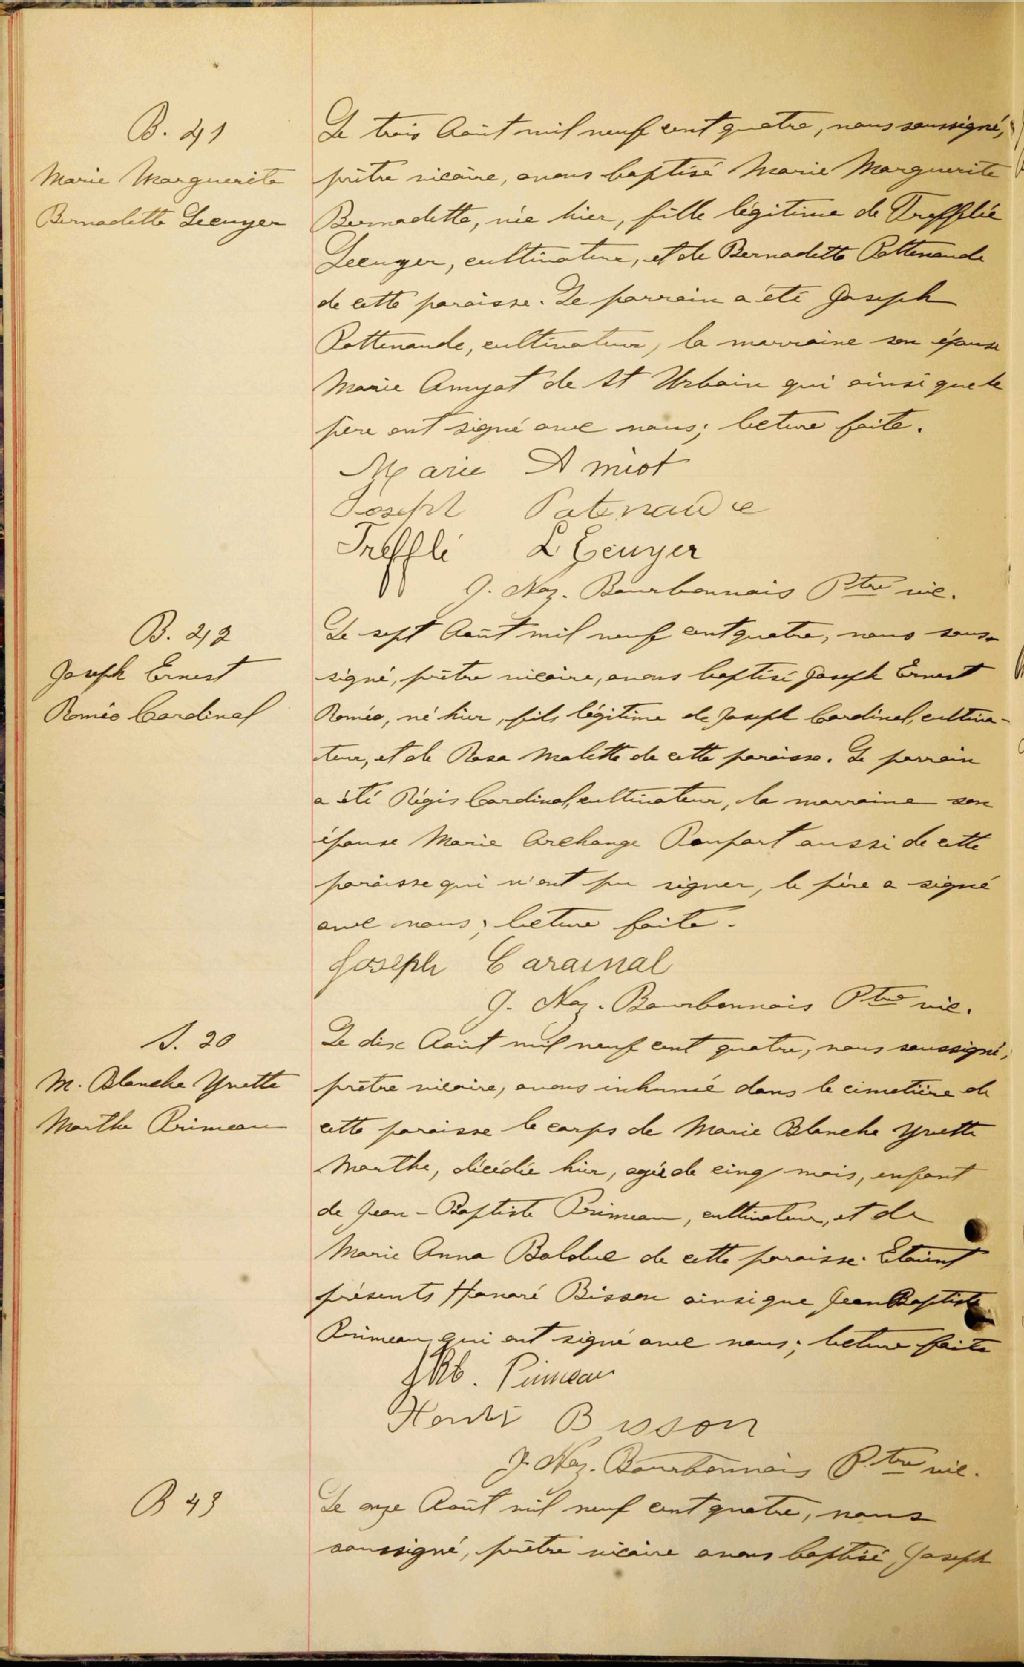 B. 41
Marie Marguerite
Bernadette Lecuyer
Le trois Août mil neuf cent quatre, nous soussigné,
prêtre vicaire, avons baptisé Marie Marguerite
Bernadette, née hier, fille légitime de Tréfflée
Lecuyer, cultivateur, et de Bernadette Pattenaude
de cette paroisse. Le parrain a été Joseph
Pattenaude, cultivateur, la marraine son épouse
Marie Amyot de St Urbain qui ainsi que le
père ont signé avec nous; lecture faite.
Marie Amiot
Joseph Patenaude
Trefflé LEcuyer
J. Naz. Bourbonnais Ptre vic.
B. 42
Joseph Ernest
Roméo Cardinal
Le sept Août mil neuf cent quatre, nous sous-
signé, prêtre vicaire, avons baptisé Joseph Ernest
Roméo, né hier, fils légitime de Joseph Cardinal, cultiva-
teur, et de Rosa Malette de cette paroisse. Le parrain
a été Régis Cardinal, cultivateur, la marraine son
épouse Marie Archange Poupart aussi de cette
paroisse qui n'ont pu signer, le père a signé
avec nous; lecture faite.
Joseph Cardinal
J. Naz. Bourbonnais Ptre vic.
S. 20
M. Blanche Yvette
Marthe Primeau
Le dix Août mil neuf cent quatre, nous soussigné,
prêtre vicaire, avons inhumé dans le cimetière de
cette paroisse le corps de Marie Blanche Yvette
Marthe, décédée hier, agée de cinq mois, enfant
de Jean-Baptiste Primeau, cultivateur, et de
Marie Anna Bolduc de cette paroisse. Etaient
présents Honoré Bisson ainsi que Jean Baptiste
Primeau qui ont signé avec nous; lecture faite
JBte. Primeau
Bisson
J. Naz. Bourbonnais Ptre vic.
B 43
Le onze Août mil neuf cent quatre, nous
soussigné, prêtre vicaire avons baptisé Joseph